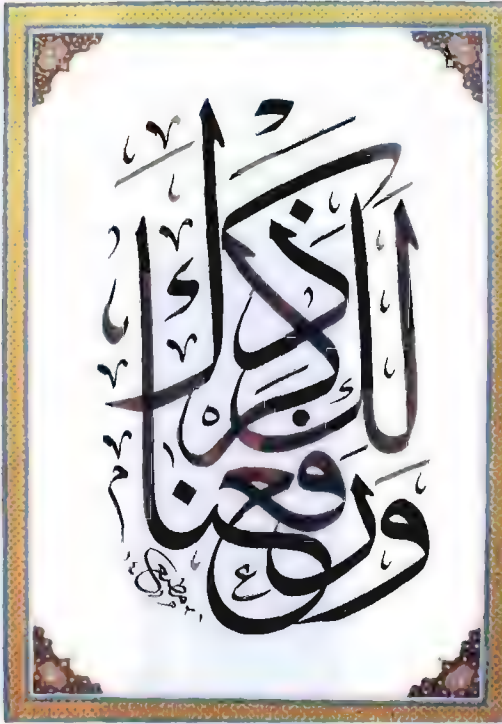 ورفعنا
لك ذكرك